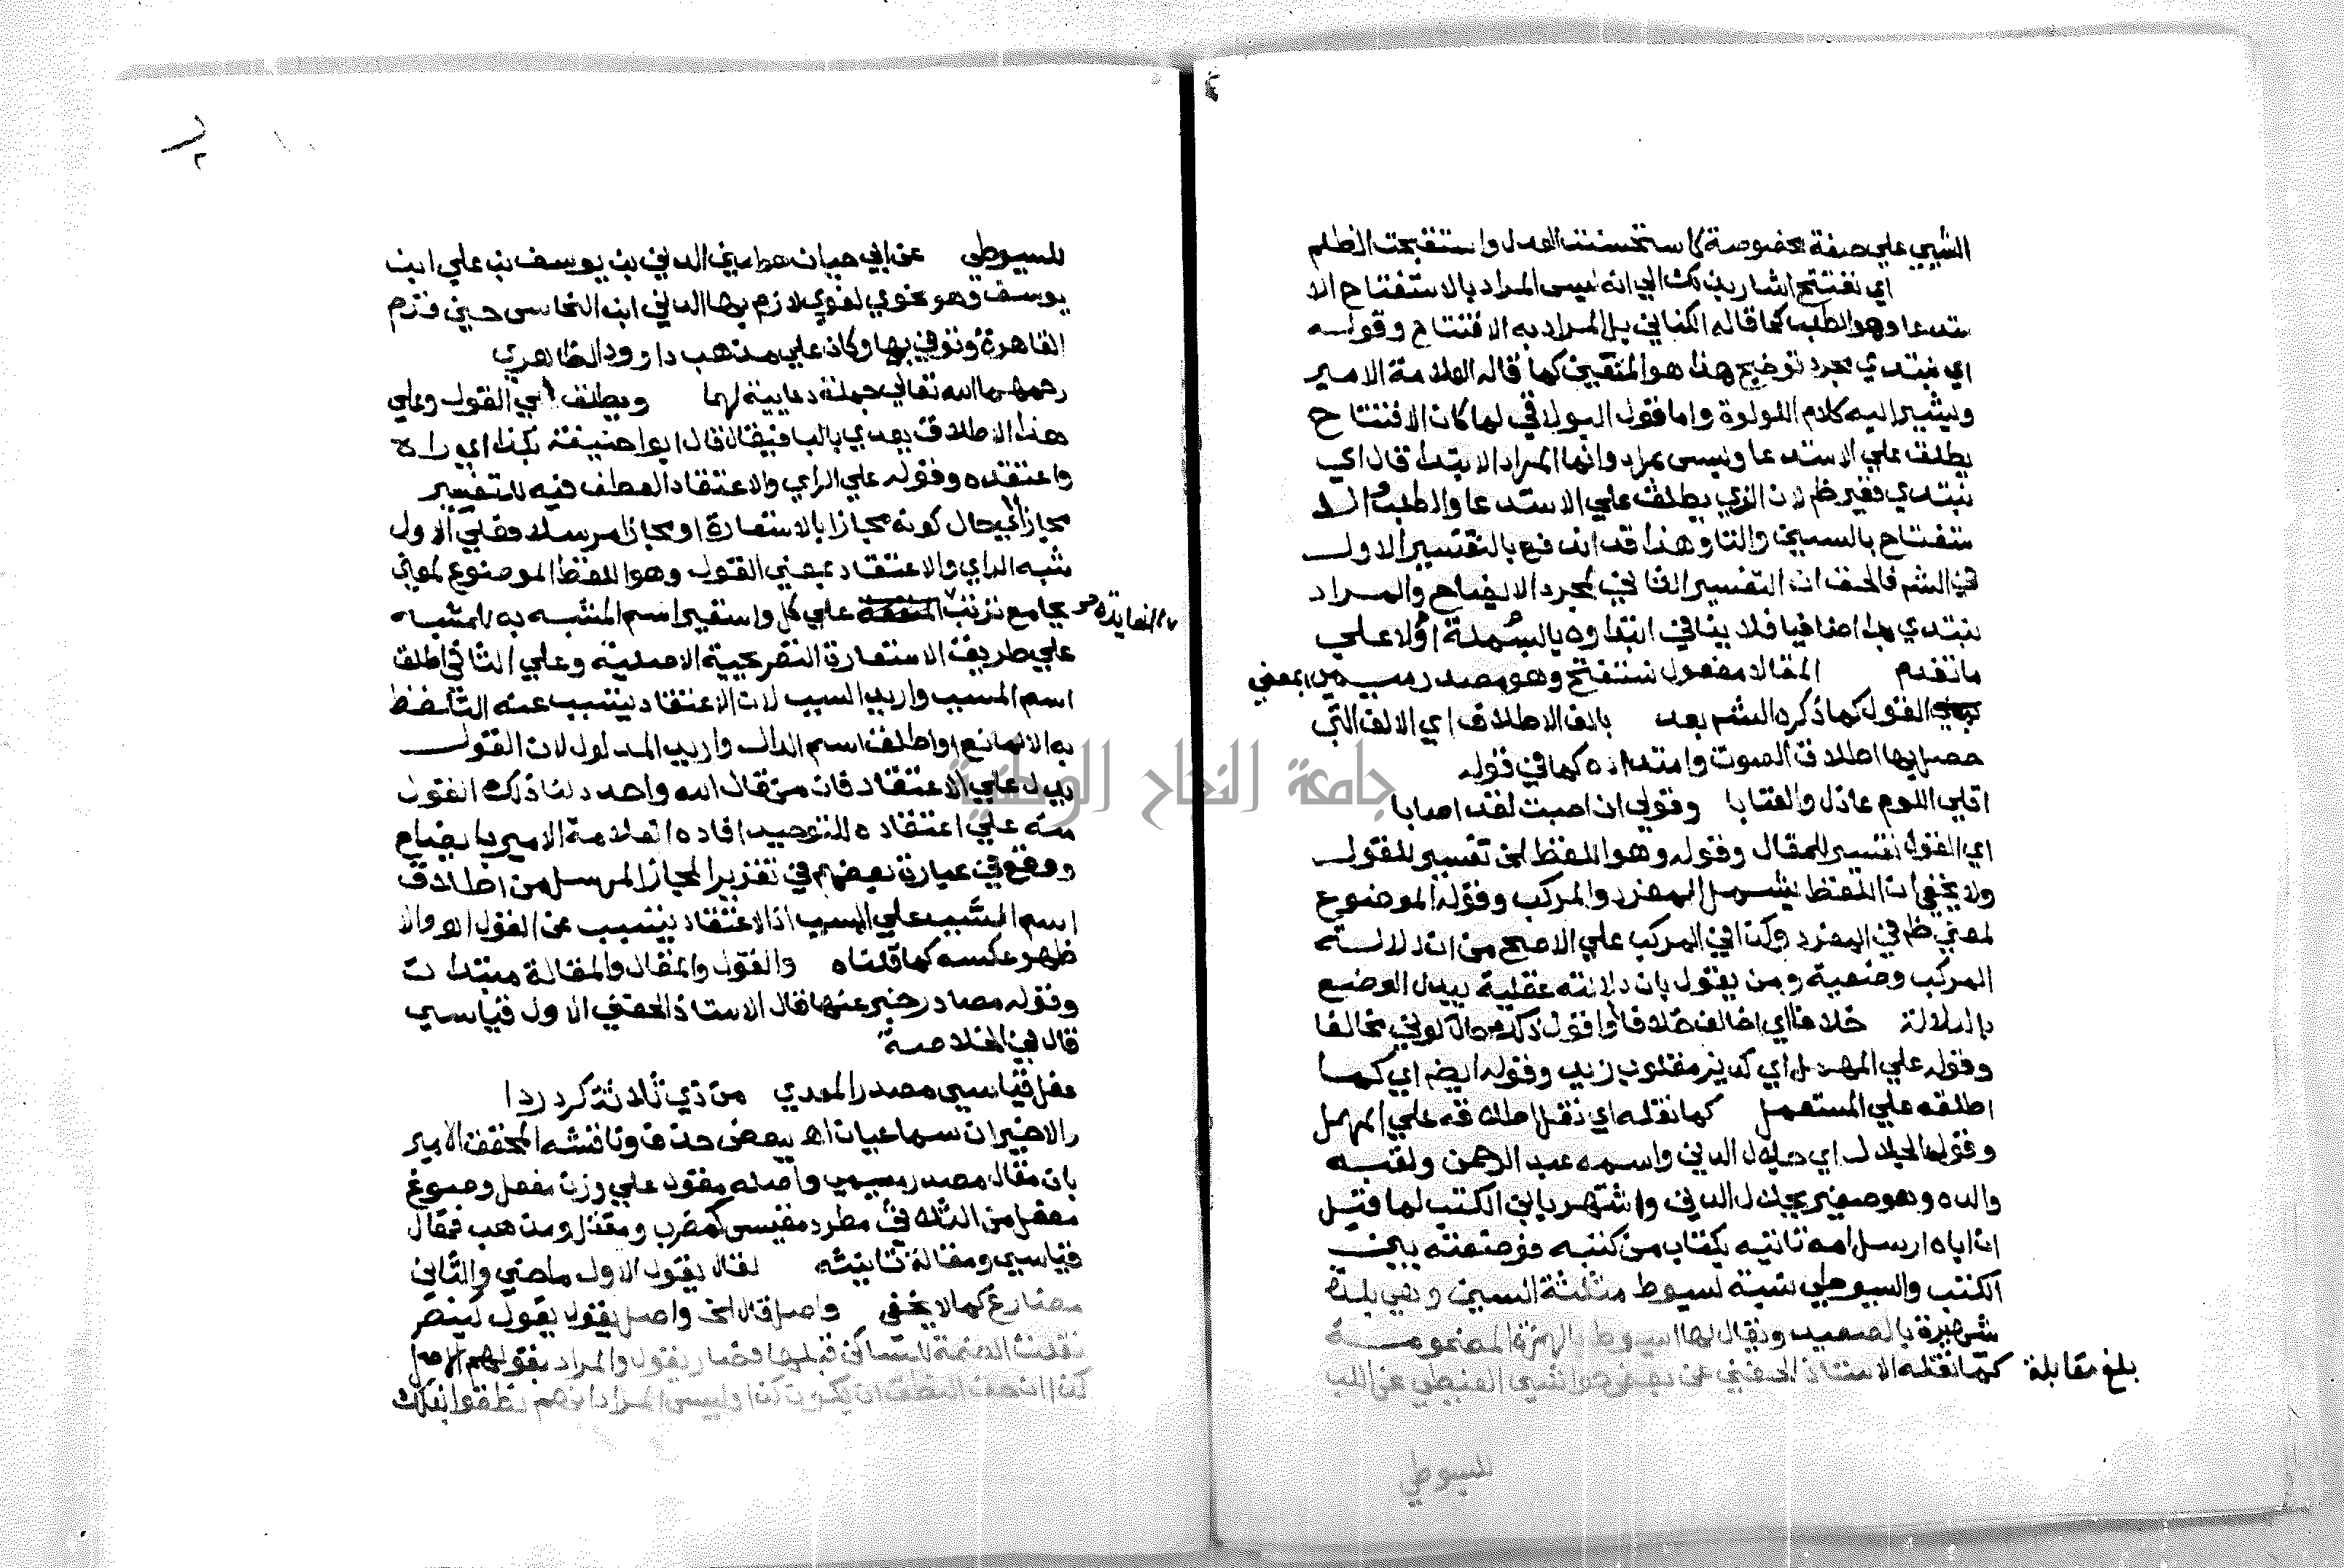 الشيي علي صفة مخصوصة كاستحسنت العدل واستقبحت الظلم
اي نفتتح اشار بذلك الي انه ليس المراد بالاستفتاح الا
ستدعا وهو الطلب كما قاله الكناني بل المراد به الافتتاح وقوله
اي نبتدي مجرد توضيح هذا هو المتعين كما قاله العلامة الامير
ويشير اليه كلام اللولوة واما قول البولاقي لما كان الافتتاح
يطلق علي الاستدعا وليس بمراد وانما المراد الابتدا قال اي
نبتدي فغير ظم لان الذي يطلق علي الاستدعا والطلب هو الا
ستفتاح بالسين والتا وهذا قد اندفع بالتفسير الاول
في الشم فالحق ان التفسير الثاني لمجرد الايضاح والمراد
نبتدي بدا اضافيا فلا ينافي ابتداوه بالبسملة اولا علي
ما تقدم المقالا مفعول نستفتح وهو مصدر ميمي بمعني
القول كما ذكره الشم بعد بالف الاطلاق اي الالف التي
حصل بها اطلاق الصوت وامتداده كما في قوله
اقلي اللوم عاذل والعتابا وقولي ان اصبت لقد اصابا
اي القول تفسير للمقال وقوله وهو اللفظ الخ تفسير للقول
ولا يخفي ان اللفظ يشمل المفرد والمركب وقوله الموضوع
لمعني ظم في المفرد وكذا في المركب علي الاصح من ان دلالته
المركب وضعية ومن يقول بان دلالته عقلية يبدل الوضع
بالدلالة خلافا اي اخالف خلافا او اقول ذلك حال كوني مخالفا
وقوله علي المهمل اي كديز مقلوب زيد وقوله ايضم اي كما
اطلقه علي المستعمل كما نقله اي نقل اطلاقه علي المهمل
وقوله الجلال اي جلال الدين واسمه عبد الرحمن ولقبه
والده وهو صغير بجلال الدين واشتهر بابن الكتب لما قيل
ان اباه ارسل امه تاتيه بكتاب من كتبه فوضعته بين
الكتب والسيوطي نسبة لسيوط مثلثة السين وهي بلدة
شهيرة بالصعيد ويقال لها اسيوط بالهمزة المضمومة
كما نقله الاستاذ الحفني عن بعض حواشي الفيطي عن اللب
بلغ مقابلة
للسيوطي
للسيوطي عن ابي حيان هو اثير الدين بن يوسف بن علي ابن
يوسف وهو نحوي لغوي لازم بها الدين ابن النحاس حين قدم
القاهرة وتوفي بها وكان علي مذهب داوود الظاهري
رحمهما الله تعالي جملة دعايية لهما ويطلق اي القول وعلي
هذا الاطلاق يعدي بالبا فيقال قال ابو احنيفة بكذا اي راه
واعتقده وقوله علي الراي والاعتقاد العطف فيه للتفسير
مجازا اي حال كونه مجازا بالاستعارة او مجازا مرسلا فعلي الاول
شبه الراي والاعتقاد بمعني القول وهو اللفظ الموضوع لمعني
بجامع ترتب المنفعة علي كل واستعير اسم المشبه به للمشبه
الفايدة صح
علي طريق الاستعارة التصريحية الاصلية وعلي الثاني اطلق
اسم المسبب واريد السبب لان الاعتقاد يتسبب عنه التلفظ
به الا لمانع او اطلق اسم الدال واريد المدلول لان القول
يدل علي الاعتقاد فان من قال الله واحد دلنا ذلك القول
منه علي اعتقاده للتوحيد افاده العلامة الامير بايضاح
ووقع في عبارة بعضهم في تقرير المجاز المرسل من اطلاق
اسم السبب علي المسبب اذ الاعتقاد يتسبب عن القول اهـ والا
ظهر عكسه كما قلناه والقول والمقال والمقالة مبتدات
وقوله مصادر خبر عنها قال الاستاذ الحفني الاول قياسي
قال في الخلاصة
فعل قياس مصدر المعدي من ذي ثلاثة كرد ردا
والاخيران سماعيان اهـ ببعض حذف وناقشه المحقق الامير
بان مقال مصدر ميمي واصله مقول علي وزن مفعل وصوغ
مفعل من الثلاثي مطرد مقيس كمضرب ومقتل ومذهب فمقال
قياسي ومقالة تانيثه لقال يقول الاول ماضي والثاني
مضارع كما لا يخفي واصل قال الخ واصل يقول يقول كينصر
نقلت الضمة للساكن قبلها فصار يقول والمراد بقولهم الاصل
كذا ان حق اللفظ ان يكون كذا وليس المراد انهم نطقوا بذلك